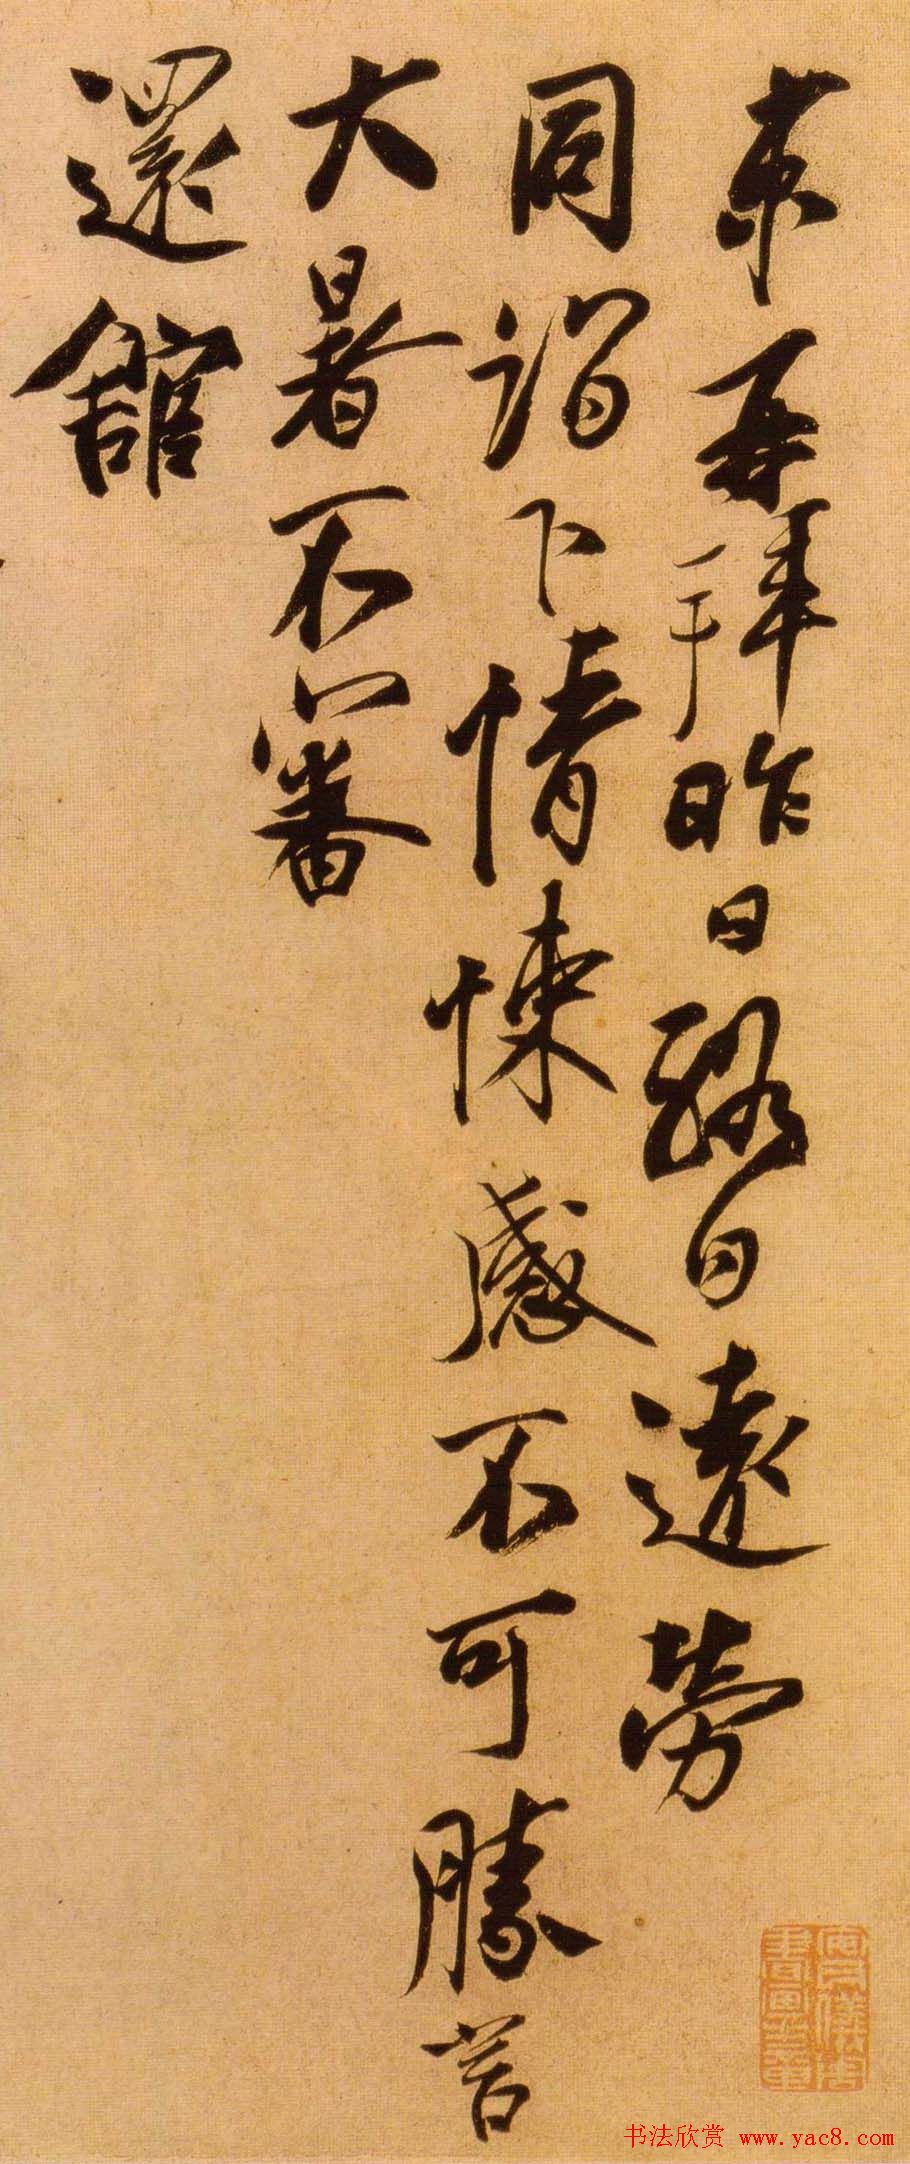 芾再拜昨日路日遠勞
同詣下情悚感不可勝言
大暑不審
還館
书法欣赏 www.yac8.com